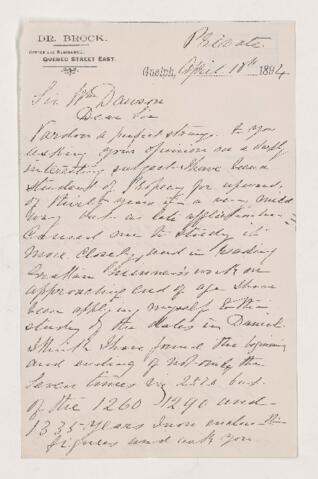 DR. BROCK.
OFFICE AND RESIDENCE,
QUEBEC STREET EAST.
Private
Guelph, April 18th 1894
Sir Wm Dawson
Dear Sir
Pardon a perfect stranger to you
asking your opinion on a deeply
interesting subject I have been a
student of Prophecy for upwards
of twelve years in a very mild
way but as late
caused me to study it
more closely, and in reading
Grattan Guinness's work on
approaching end of age I have
been applying myself to the
study of the dates in Daniel.
I think I have found the beginning
and ending of not only the
seven times viz 2520 but
of the 1260 1290 and
1335 years I now enclose the
figures and ask you